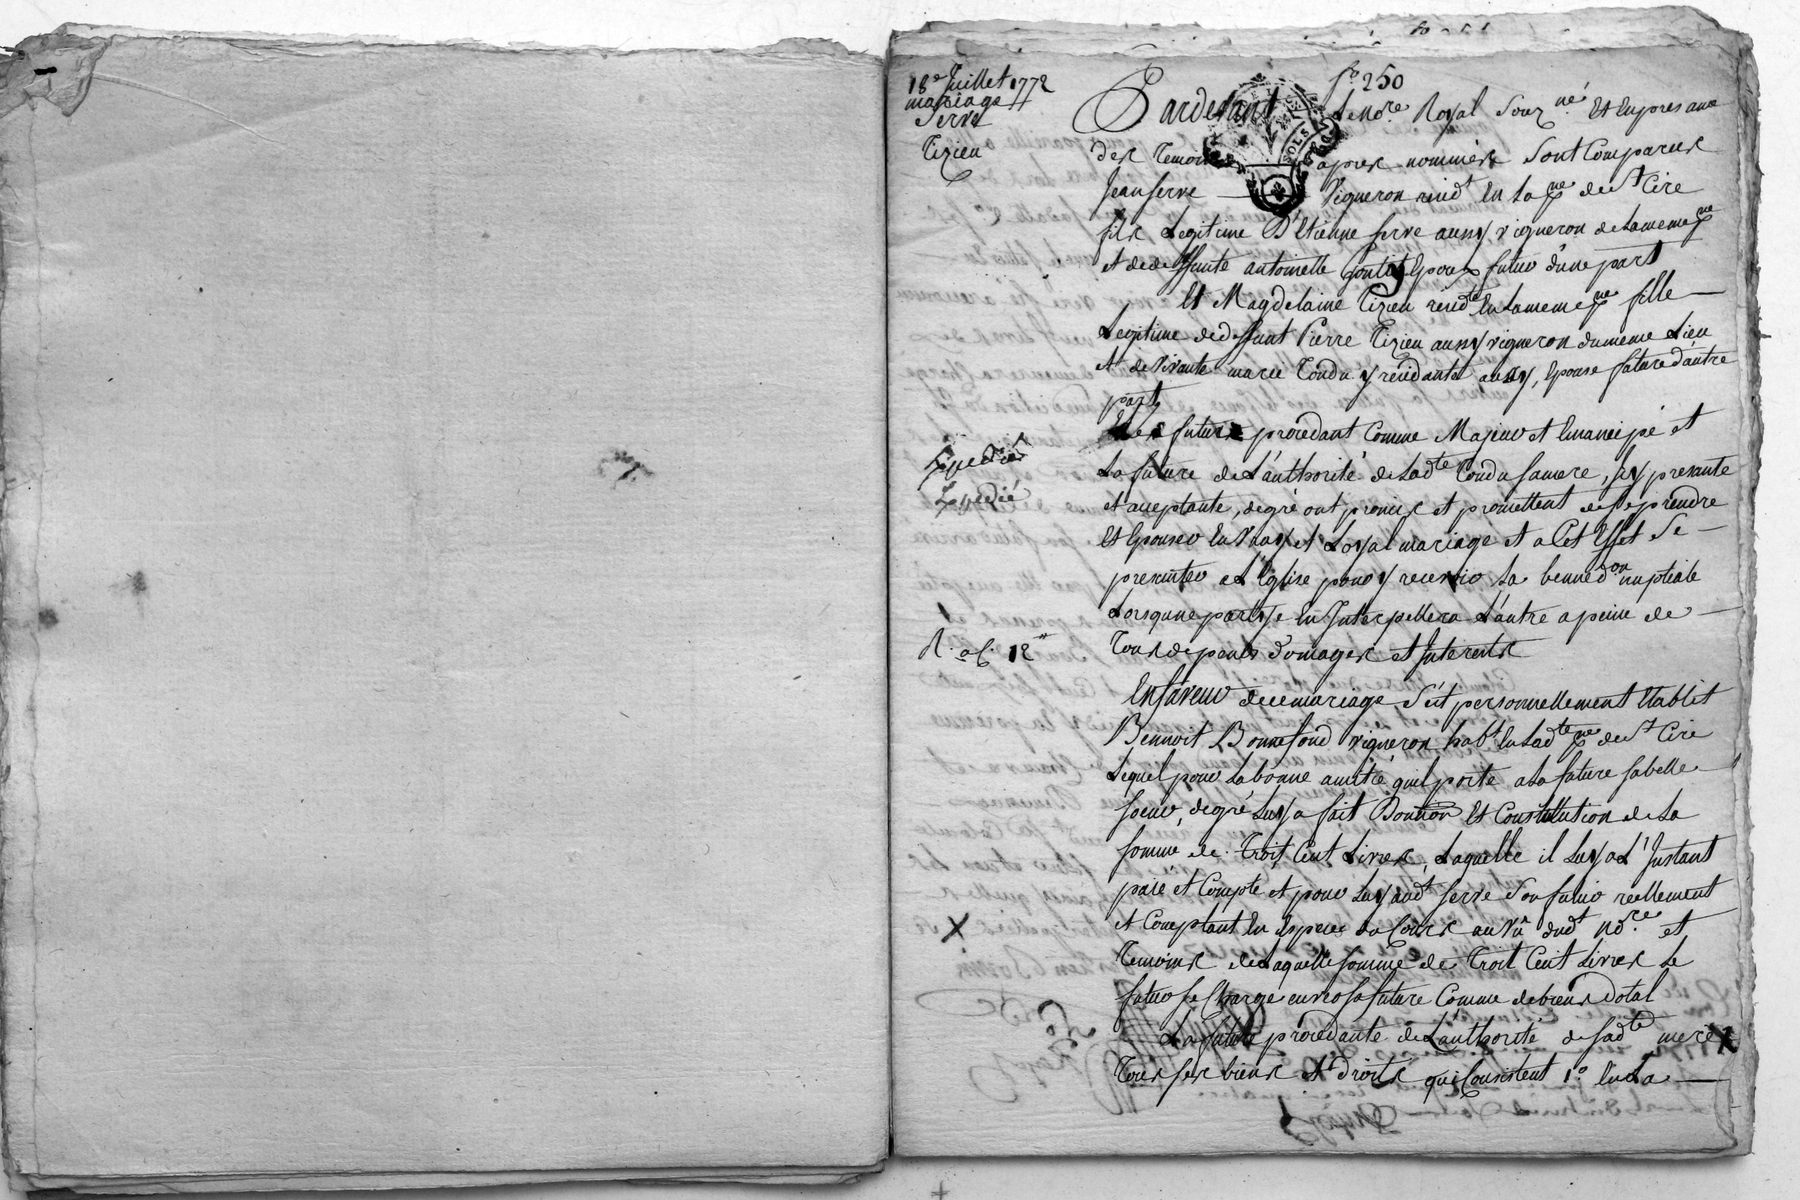 18e Juillet 1772
mariage
Serve
Tizieu
fo 250
Pardevant Le Nore Royal Souz.né Et En presance
des Temoins apres nommés Sont Comparus
Jean Serve Vigneron resid.t En La p.sse de St Cire
fils Legitime D'Etienne Serve aussy vigneron de La meme p.sse
et de deffunte antoinette Epoux futur d'une part
Et Magdelaine Tizieu resid.te En La meme p.sse fille
Legitime de deffunt Pierre Tizieu aussy vigneron du meme Lieu
et de Vivante marie Condu y residante aussy, Epouse future d'autre
part
futur procedant Comme Majeur et Emancipé et
La future de L'authorité de Lad.te Condu sa mere, presante
et acceptante, de gré ont promis et promettent de se prendre
Et Epouser En Vray et Loyal mariage et a Cet Effet Se
presenter a L'Eglise pour y recevoir La bened.on nuptiale
Lorsqu'une partie En Interpellera L'autre a peine de
Tous depens Domages et Interests
Expedié
Expedié
R. 12
En faveur de ce mariage S'est personnellement Etablit
Bennoit Bonnefond vigneron hab.t En Lad.te p.sse de St Cire
Lequel pour La bonne amitié qu'il porte a La future sa belle
soeur, de gré Luy a fait Donnon Et Constitution de La
somme de Trois Cent Livres, Laquelle il Luy a L'Instant
paié et Compte et pour Luy aud.t Serve Son futur reellement
et Comptant En Especes du Cours au Vû dud.t No.re et
Temoins de Laquelle somme de Trois Cent Livres Le
futur se Charge envers sa future Comme de biens Dotal
La future procedante de L'authorité de sad.te mere
Tous ses biens et Droits qui Consistent 1.o En La